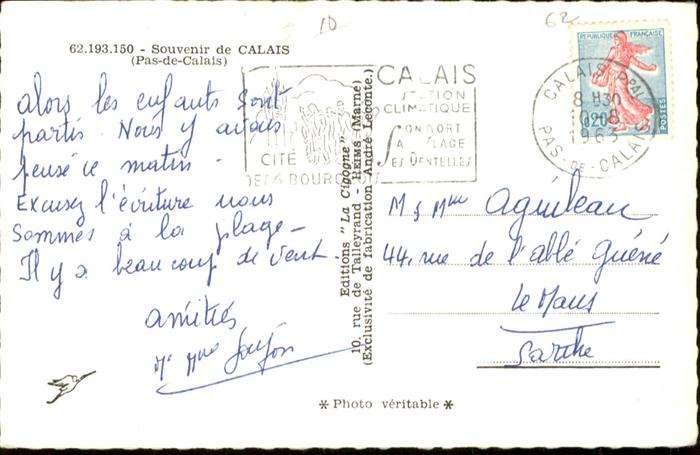 10
62
62.193.150 - Souvenir de CALAIS
(Pas-de-Calais)
alors les enfants sont
partis. Nous y avons
pensé ce matin.
Excusez l'écriture nous
sommes à la plage -
Il y a beaucoup de vent.
amitiés
Mr Mme Goujon
CALAIS
STATION
CLIMATIQUE
SON PORT
SA PLAGE
SES DENTELLES
CITÉ
DES 6 BOURGEOIS
Editions "La Cigogne"
10, rue de Talleyrand - REIMS (Marne)
(Exclusivité de fabrication André Leconte.)
REPUBLIQUE FRANÇAISE
0,20
POSTES
CALAIS PPAL
8 H30
8
1963
PAS-DE-CALAIS
M & Mme Aguileau
44, rue de l'abbé Guéné
Le Mans
Sarthe
* Photo véritable *